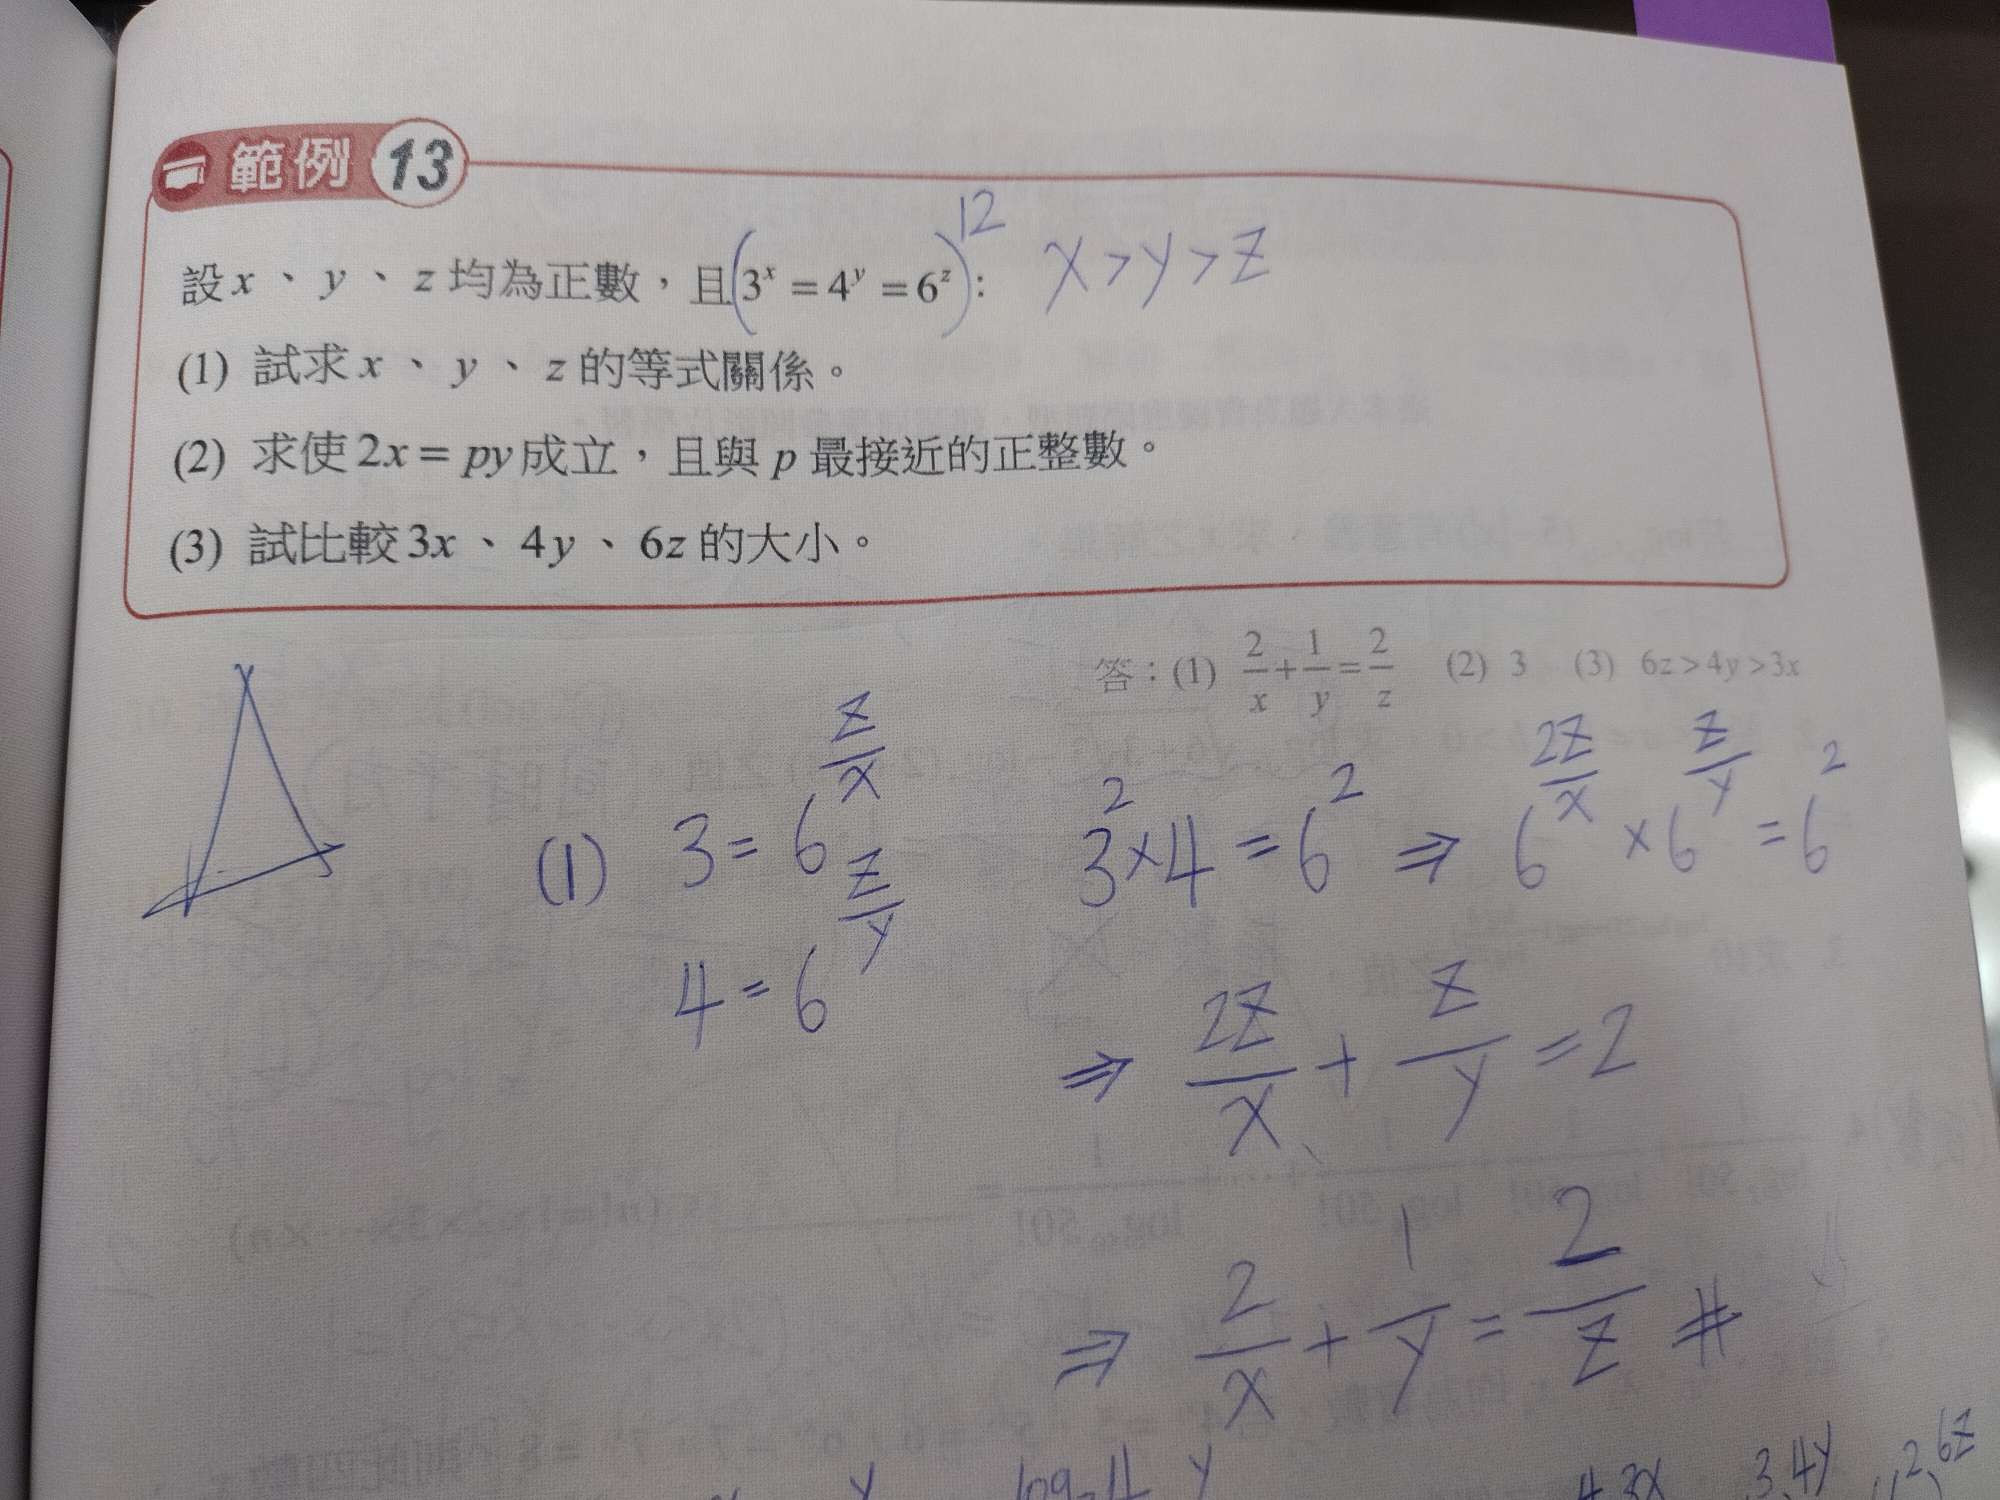 範例 13
設 x、y、z 均為正數，且(3^x = 4^y = 6^z)^12： x > y > z
(1) 試求 x、y、z 的等式關係。
(2) 求使 2x = py 成立，且與 p 最接近的正整數。
(3) 試比較 3x、4y、6z 的大小。
答：(1) 2/x + 1/y = 2/z (2) 3 (3) 6z > 4y > 3x
(1) 3 = 6^(z/x) 3^2 × 4 = 6^2 ⇒ 6^(2z/x) × 6^(z/y) = 6^2
4 = 6^(z/y)
⇒ 2z/x + z/y = 2
⇒ 2/x + 1/y = 2/z #